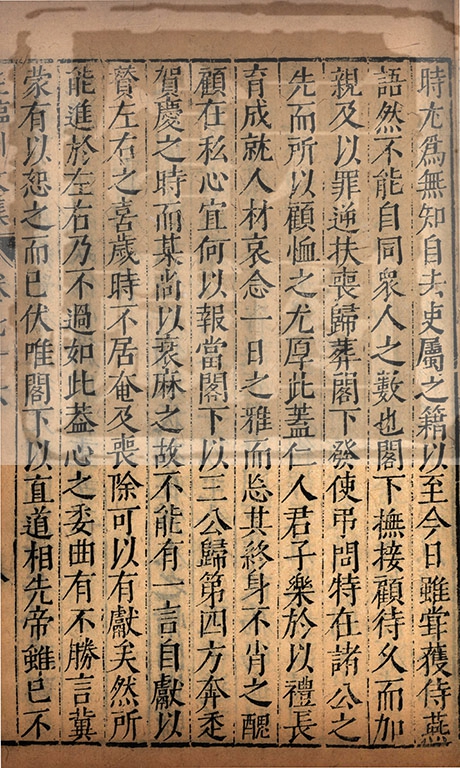 時尤爲無知自去吏屬之籍以至今日雖甞獲侍燕
語然不能自同衆人之數也閤下撫接顧待久而加
親及以罪逆扶喪歸葬閤下發使弔問特在諸公之
先而所以顧恤之尤厚此葢仁人君子樂於以禮長
育成就人材哀念一日之雅而忘其終身不肖之醜
顧在私心宜何以報當閤下以三公歸第四方奔走
賀慶之時而某尚以衰麻之故不能有一言自獻以
賛左右之喜歲時不居奄及喪除可以有獻矣然所
能進於左右乃不過如此葢心之委曲有不勝言冀
蒙有以恕之而已伏唯閤下以直道相先帝雖已不